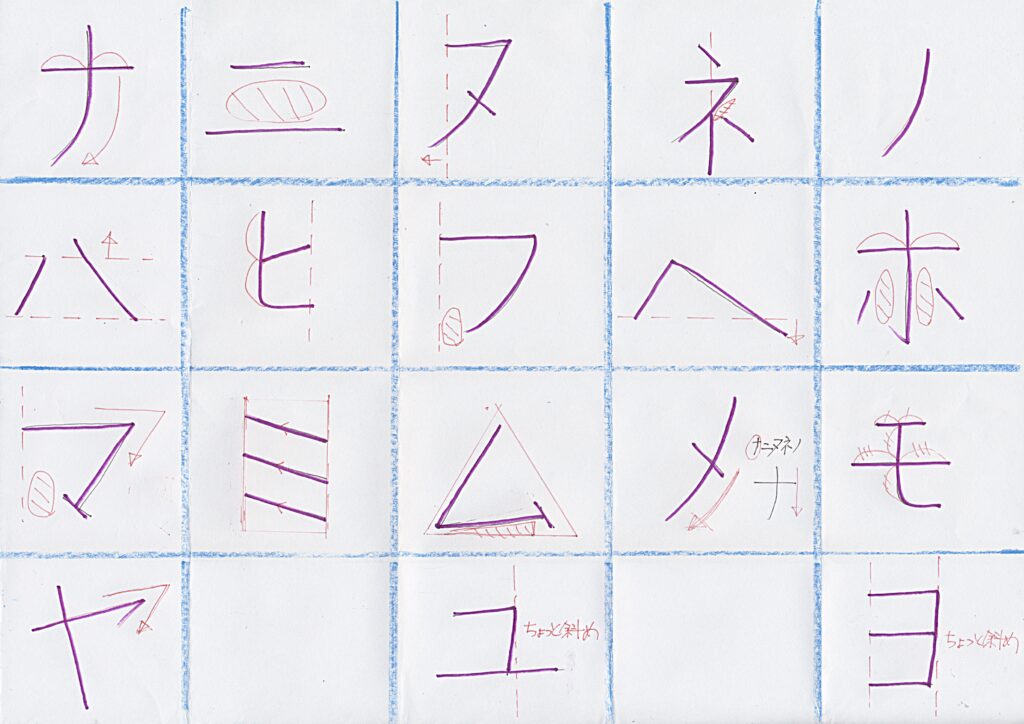 ナ ニ ヌ ネ ノ
ハ ヒ フ ヘ ホ
マ ミ ム メ ナニヌネノ ナ モ
ヤ ユ ちょっと斜め ヨ ちょっと斜め